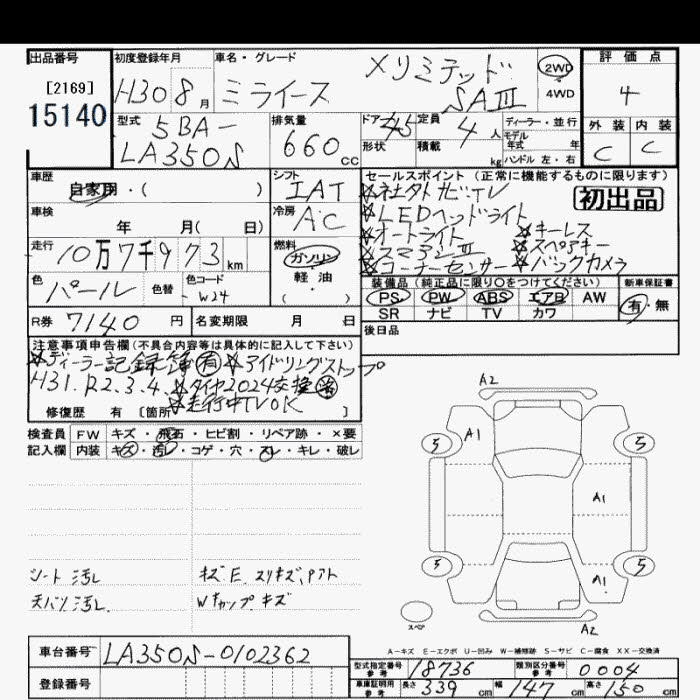 出品番号
[2169]
15140
初度登録年月
H30 8月
車名・グレード
ミライース
Xリミテッド
SAⅢ
2WD
4WD
評価点
4
外装 内装
C C
型式
5BA-
LA350S
排気量
660cc
ドア 45
形状
定員 4人
積載 kg
ディーラー・並行
モデル
年式 年
ハンドル 左・右
車歴
自家用・( )
シフト
IAT
車検
年 月( 日)
冷房
AC
走行
10万7千973km
燃料
ガソリン
軽・油
( )
色
パール
色替
色コード
W24
セールスポイント(正常に機能するものに限ります)
☆社外ナビTV
初出品
☆LEDヘッドライト
☆オートライト ☆キーレス
☆スマアシⅢ ☆スペアキー
☆コーナーセンサー ☆バックカメラ
装備品(純正品に限り○をつけてください)
新車保証書
PS PW ABS エアB AW
SR ナビ TV カワ
有・無
R券 7140円
名変期限 月 日
後日品
注意事項申告欄(不具合内容等は具体的に記入して下さい)
☆ディーラー記録簿有 ☆アイドリングストップ
H31.R2.3.4. ☆タイヤ2024交換済
☆走行中TVOK
修復歴 有 [箇所 ]
検査員 FW キズ・飛石・ヒビ割・リペア跡・×要
記入欄 内装 キズ・汚レ・コゲ・穴・スレ・キレ・破レ
シート汚レ
天バリ汚レ.
キズE.スリキズ,Pアト
Wキャップキズ
A2
5
A1
5
A1
5
A1
5
スペア
A2
A－キズ E－エクボ U－凹み W－補修跡 S－サビ C－腐食 XX－交換済
車台番号 LA350S-0102362
登録番号
型式指定番号
参考
18736
類別区分番号
参考
0004
車庫証明用
参考
長さ 339cm 幅 147cm 高さ 150cm